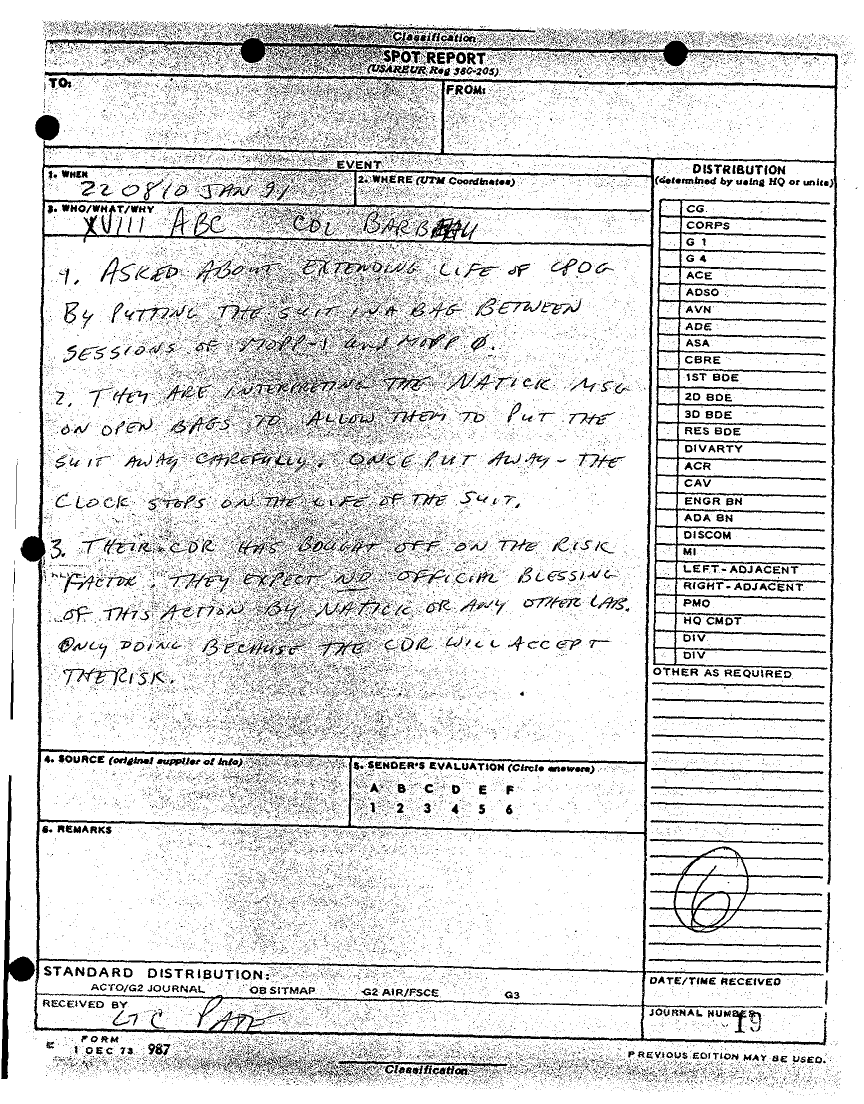 Classification
SPOT REPORT
(USAREUR Reg 380-205)
TO:
FROM:
EVENT
1. WHEN
220810 JAN 91
2. WHERE (UTM Coordinates)
3. WHO/WHAT/WHY
XVIII ABC COL BARBEAU
1. ASKED ABOUT EXTENDING LIFE OF CPOG
BY PUTTING THE SUIT IN A BAG BETWEEN
SESSIONS OF MOPP-1 and MOPP 0.
2. THEY ARE INTERPRETING THE NATICK MSG
ON OPEN BAGS TO ALLOW THEM TO PUT THE
SUIT AWAY CAREFULLY. ONCE PUT AWAY - THE
CLOCK STOPS ON THE LIFE OF THE SUIT.
3. THEIR CDR HAS BOUGHT OFF ON THE RISK
FACTOR. THEY EXPECT NO OFFICIAL BLESSING
OF THIS ACTION BY NATICK OR ANY OTHER LAB.
ONLY DOING BECAUSE THE CDR WILL ACCEPT
THE RISK.
4. SOURCE (original supplier of info)
5. SENDER'S EVALUATION (Circle answers)
A B C D E F
1 2 3 4 5 6
6. REMARKS
DISTRIBUTION
(determined by using HQ or units)
CG
CORPS
G 1
G 4
ACE
ADSO
AVN
ADE
ASA
CBRE
1ST BDE
2D BDE
3D BDE
RES BDE
DIVARTY
ACR
CAV
ENGR BN
ADA BN
DISCOM
MI
LEFT-ADJACENT
RIGHT-ADJACENT
PMO
HQ CMDT
DIV
DIV
OTHER AS REQUIRED
6
STANDARD DISTRIBUTION:
ACTO/G2 JOURNAL OB SITMAP G2 AIR/FSCE G3
RECEIVED BY
LTC PATE
DATE/TIME RECEIVED
JOURNAL NUMBER
19
FORM
1 DEC 73 987
PREVIOUS EDITION MAY BE USED.
Classification